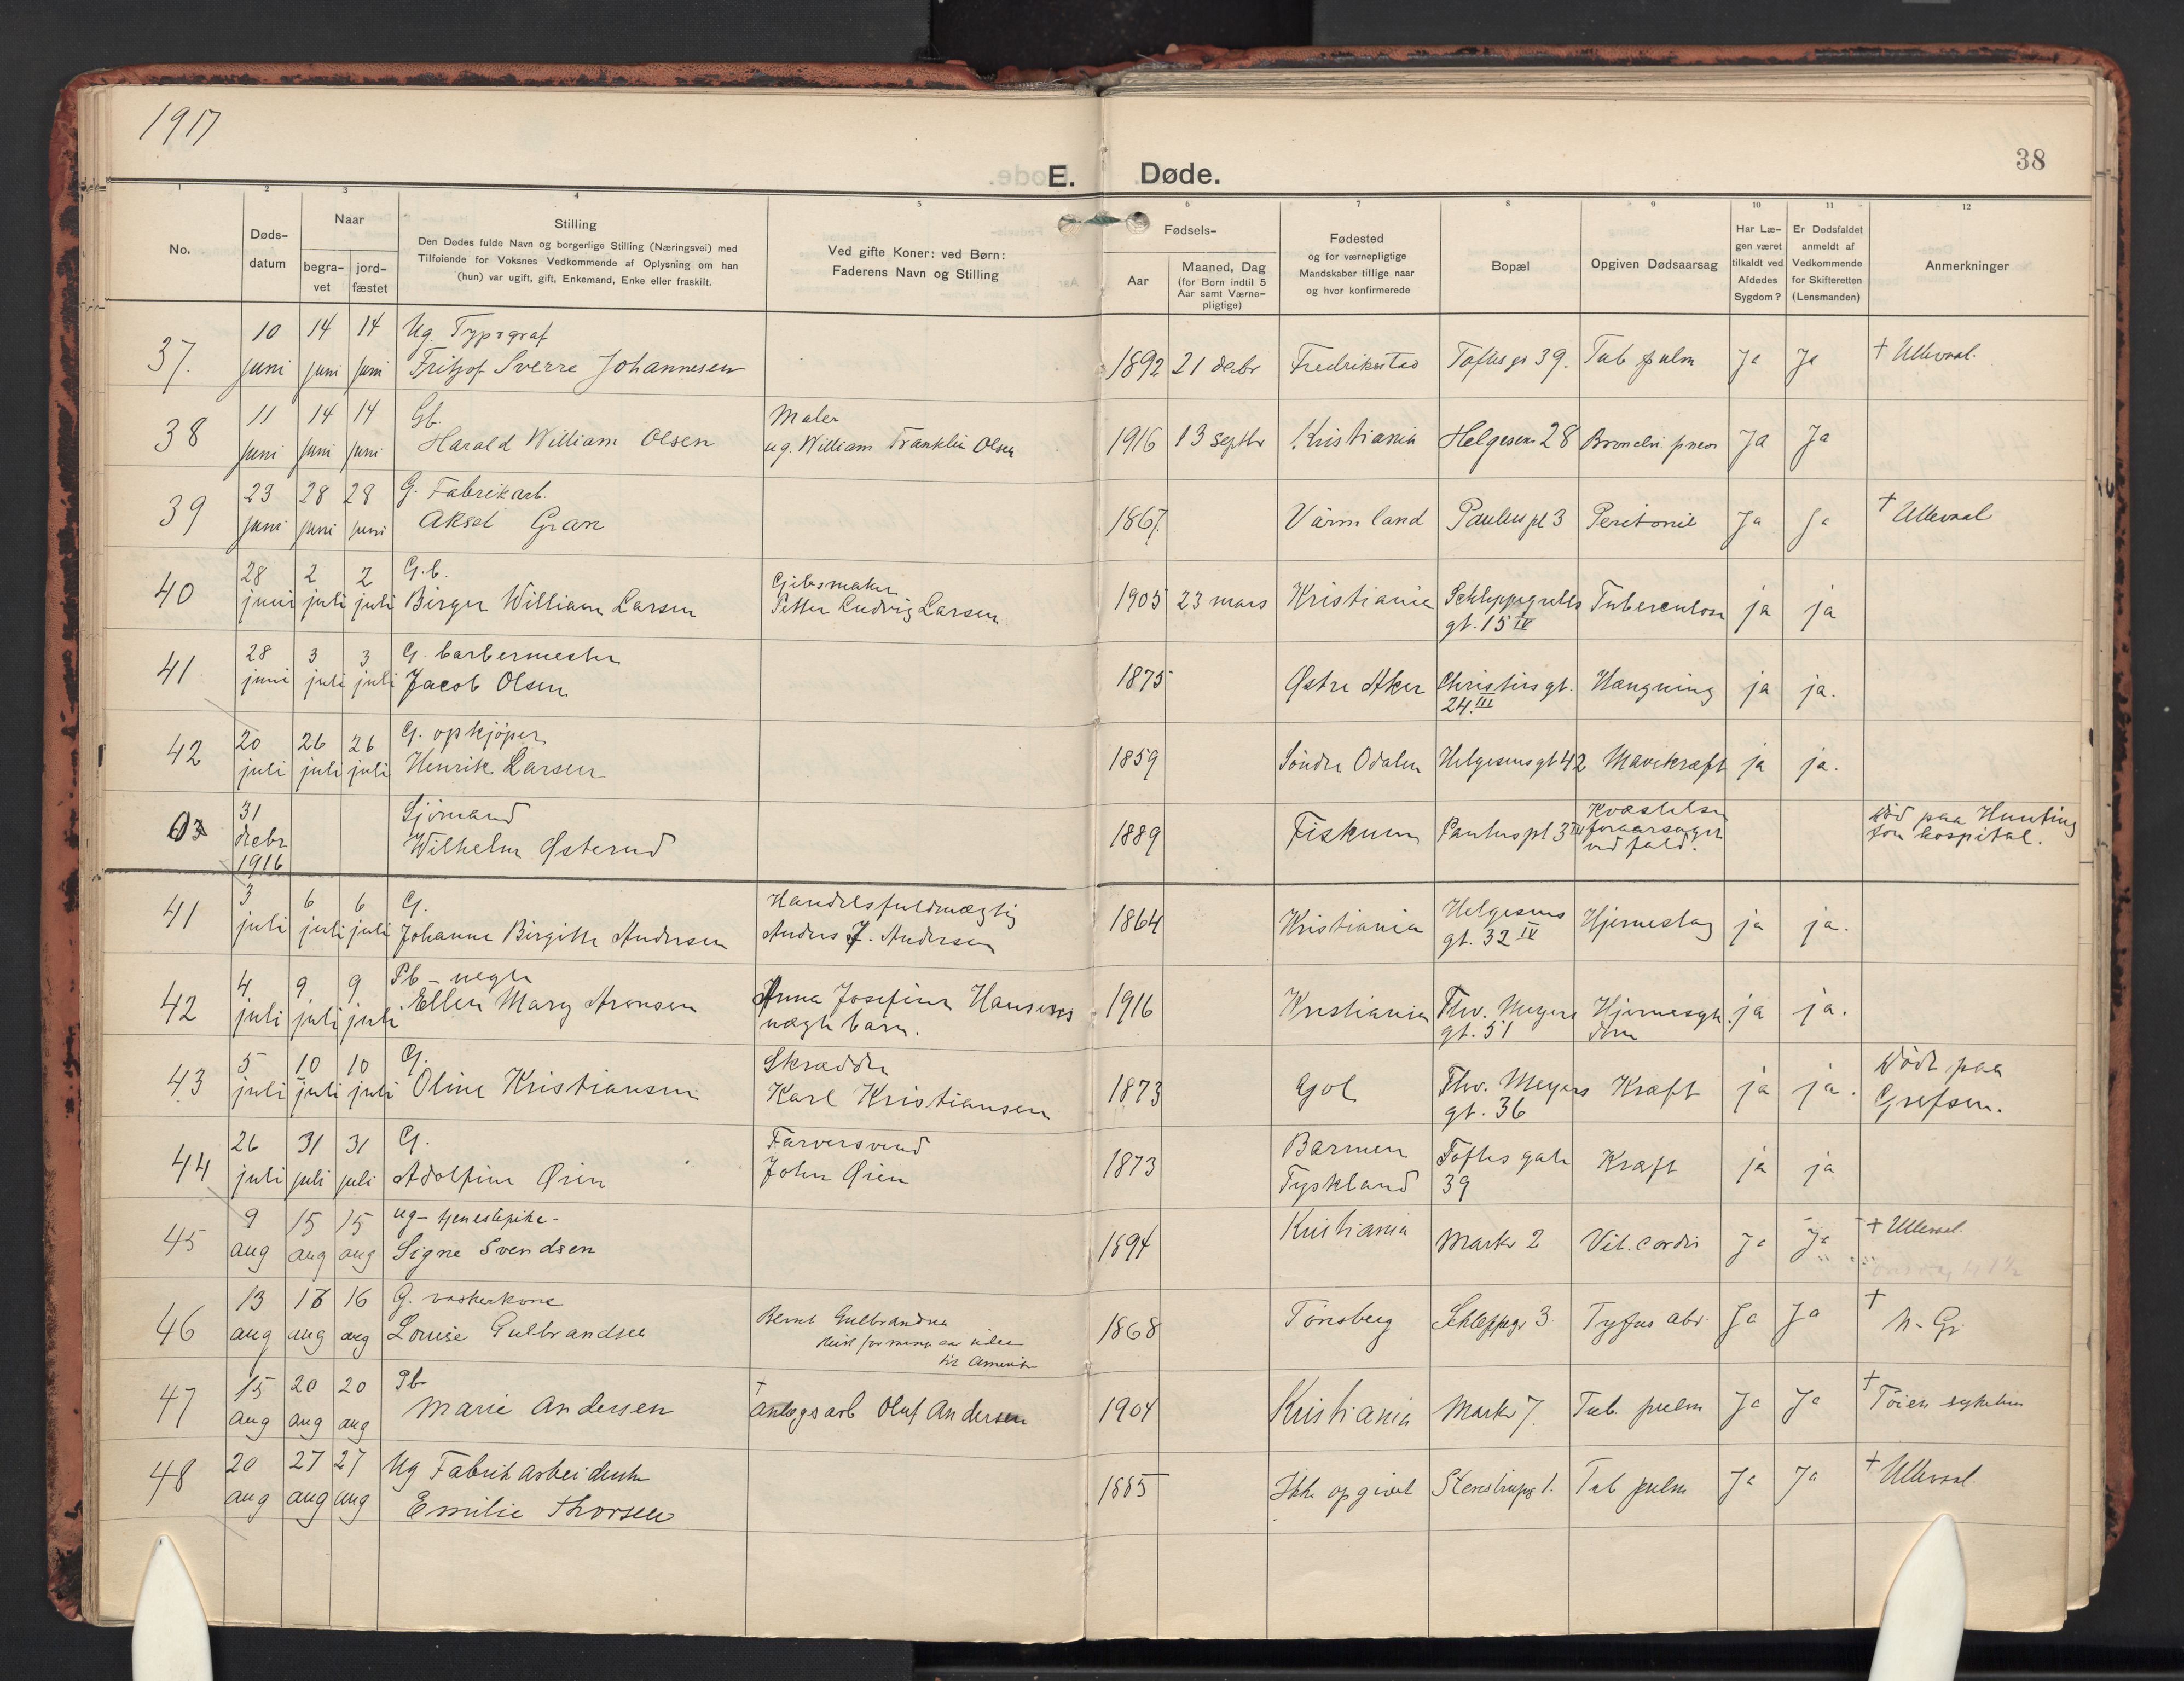 1917
E. Døde.
38
1 2 3 4 5 6 7 8 9 10 11 12
No.
Døds-
datum
Naar
begra-
vet
jord-
fæstet
Stilling
Den Dødes fulde Navn og borgerlige Stilling (Næringsvei) med
Tilføiende for Voksnes Vedkommende af Oplysning om han
(hun) var ugift, gift, Enkemand, Enke eller fraskilt.
Ved gifte Koner: ved Børn:
Faderens Navn og Stilling
Fødsels-
Aar
Maaned, Dag
(for Børn indtil 5
Aar samt Værne-
pligtige)
Fødested
og for værnepligtige
Mandskaber tillige naar
og hvor konfirmerede
Bopæl
Opgiven Dødsaarsag
Har Læ-
gen været
tilkaldt ved
Afdødes
Sygdom?
Er Dødsfaldet
anmeldt af
Vedkommende
for Skifteretten
(Lensmanden)
Anmerkninger
10 14 14 Ug. Typograf
37. juni juni juni Fritjof Sverre Johannesen 1892 21 decbr Fredrikstad Toftesg 39. Tub pulm Ja Ja † Ullevaal.
11 14 14 Gb. Maler
38 juni juni juni Harald William Olsen ug. William Franklin Olsen 1916 13 septbr Kristiania Helgesens 28 Bronchi pneu Ja Ja
23 28 28 G. Fabrikarb.
39 juni juni juni Aksel Gran 1867. Värmland Paulus pl 3 Peritonit Ja Ja † Ullevaal
28 2 2 G.b. Gibsmaker
40 juni juli juli Birger William Larsen Petter Ludvig Larsen 1905 23 mars Kristiania Schleppegrells Tuberculose ja ja
gt. 15 IV
28 3 3 G. barbermester
41 juni juli juli Jacob Olsen 1875 Østre Aker Christiesgt. Hængning ja ja.
24 III
20 26 26 G. opkjøper
42 juli juli juli Henrik Larsen 1859 Söndre Odalen Helgesensgt 42 Mavekræft ja ja.
31 Sjömand Kvæstelse
03 decbr Wilhelm Østerud 1889 Fiskum Paulus pl 3 IV foraarsaget Död paa Hunting
1916 ved fald. ton hospital.
3 6 6 G. Handelsfuldmægtig
41 juli juli juli Johanne Birgitte Andersen Anders J. Andersen 1864 Kristiania Helgesens Hjerneslag ja ja.
gt. 32 IV
4 9 9 Pb – uegte
42 juli juli juli Ellen Mary Aronsen Anna Josefine Hansens 1916 Kristiania Thv. Meyers Hjernesyg- ja ja.
uægte barn. gt. 51 dom
5 10 10 G. Skrædder
43 juli juli juli Oline Kristiansen Karl Kristiansen 1873 Gol Thv. Meyers Kræft ja ja. Döde paa
gt. 36 Grefsen.
26 31 31 G. Farversvend Barmen Toftes gate
44 juli juli juli Adolfine Øien John Øien 1873 Tyskland 39 Kræft ja ja
9 15 15 ug – tjenestepike –
45 aug aug aug Signe Svendsen 1894 Kristiania Markv 2 Vit. cordis Ja Ja † Ullevaal
13 16 16 G. vaskerkone Bernt Gulbrandsen
46 aug aug aug Louise Gulbrandsen 1868 Tönsberg Schleppgr 3. Tyfus abd. Ja Ja †
til Amerika
15 20 20 Pb
47 aug aug aug Marie Andersen † anlægsarb Oluf Andersen 1904 Kristiania Markv 7. Tub. pulm Ja Ja † Töien sykehus
20 27 27 Ug Fabrikarbeiderske
48 aug aug aug Emilie Thorsen 1885 Ikke opgivet Stenstrupsg 1. Tub pulm Ja Ja † Ullevaal.